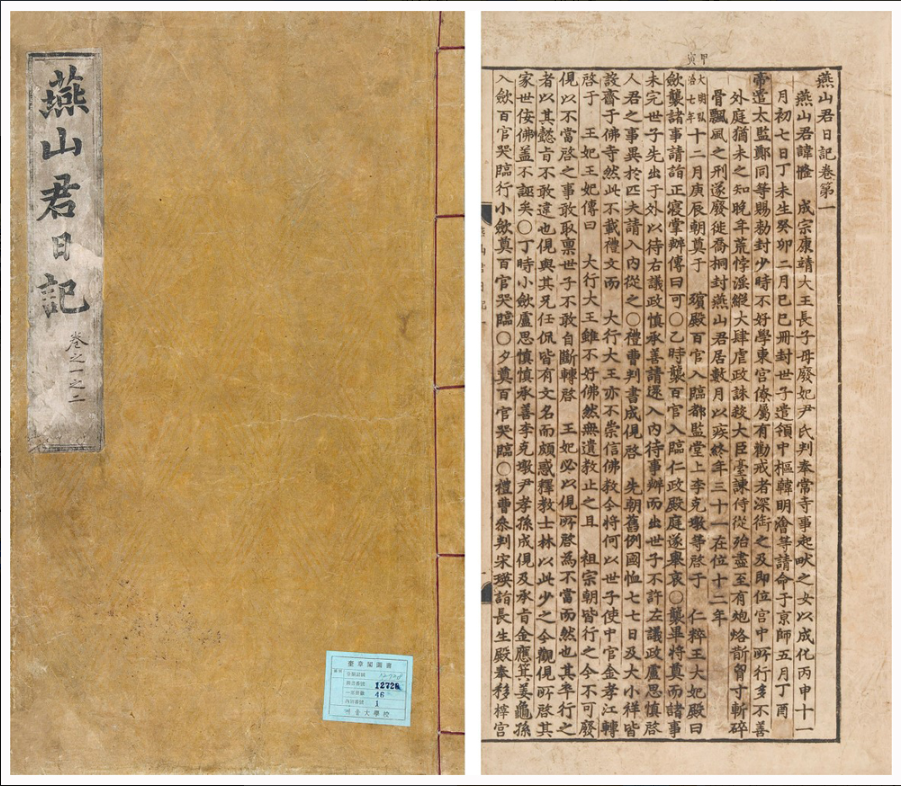 燕山君日記
卷之一之二
奎章閣圖書
12728
46
1
燕山君日記卷第一
燕山君諱㦕 成宗康靖大王長子母廢妃尹氏判奉常寺事起畎之女以成化丙申十一
月初七日丁未生癸卯二月己巳冊封世子遣領中樞韓明澮等請命于京師五月丁酉
帝遣太監鄭同等賜勑封少時不好學東宮僚屬有勸戒者深銜之及即位宮中所行多不善
外庭猶未之知晩年荒悖淫縱大肆虐政誅殺大臣臺諫侍從殆盡至有炮烙斮胷寸斬碎
骨飄風之刑遂廢徙喬桐封燕山君居數月以疾終年三十一在位十二年
甲寅
大明弘治七年十二月庚辰朝奠于 殯殿百官入臨都監堂上李克墩等啓于 仁粹王大妃殿曰
歛襲諸事請詣正寢掌辦傳曰可○乙時襲百官入臨仁政殿庭遂擧哀○襲畢將奠而諸事
未完世子先出于外以待右議政愼承善請還入內待事辦而出世子不許左議政盧思愼啓
人君之事異於匹夫請入內從之○禮曹判書成俔啓 先朝舊例國恤七七日及大小祥皆
設齋于佛寺然此不載禮文而 大行大王亦不崇信佛敎今將何以世子使中官金孝江轉
啓于 王妃王妃傳曰 大行大王雖不好佛然無遺敎止之且 祖宗朝皆行之今不可廢
俔以不當啓之事敢取稟世子不敢自斷轉啓 王妃必以俔所啓爲不當而然也其率行之
者以其懿旨不敢違也俔與其兄任侃皆有文名而頗惑釋敎士林以此少之今觀俔所啓其
家世侫佛蓋不誣矣○丁時小歛盧思愼愼承善李克墩尹孝孫成俔及承旨金應箕姜龜孫
入歛百官哭臨行小歛奠百官哭臨○夕奠百官哭臨○禮曹參判宋瑛詣長生殿奉移梓宮